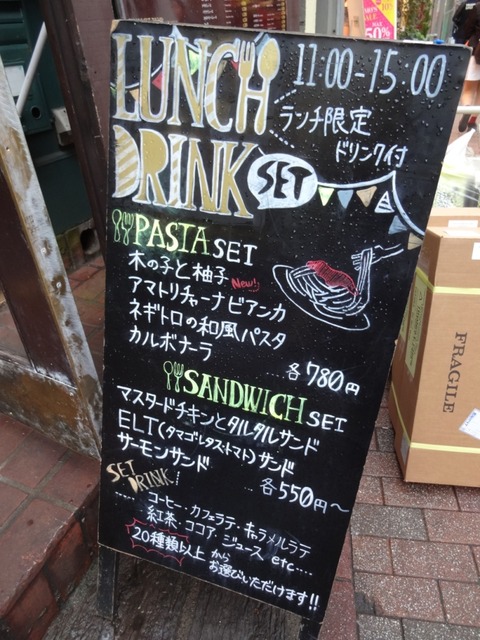 LUNCH 11:00-15:00
DRINK SET
ランチ限定
ドリンク付
PASTA SET
木の子と柚子 New!
アマトリチャーナビアンカ
ネギトロの和風パスタ
カルボナーラ
...各780円
SANDWICH SET
マスタードチキンとタルタルサンド
ELT(タマゴ・レタス・トマト)サンド
サーモンサンド
...各550円~
SET DRINK!
コーヒー・カフェラテ・キャラメルラテ
紅茶・ココア・ジュース etc....
20種類以上から
お選びいただけます!!
FRAGILE
SALE
50%